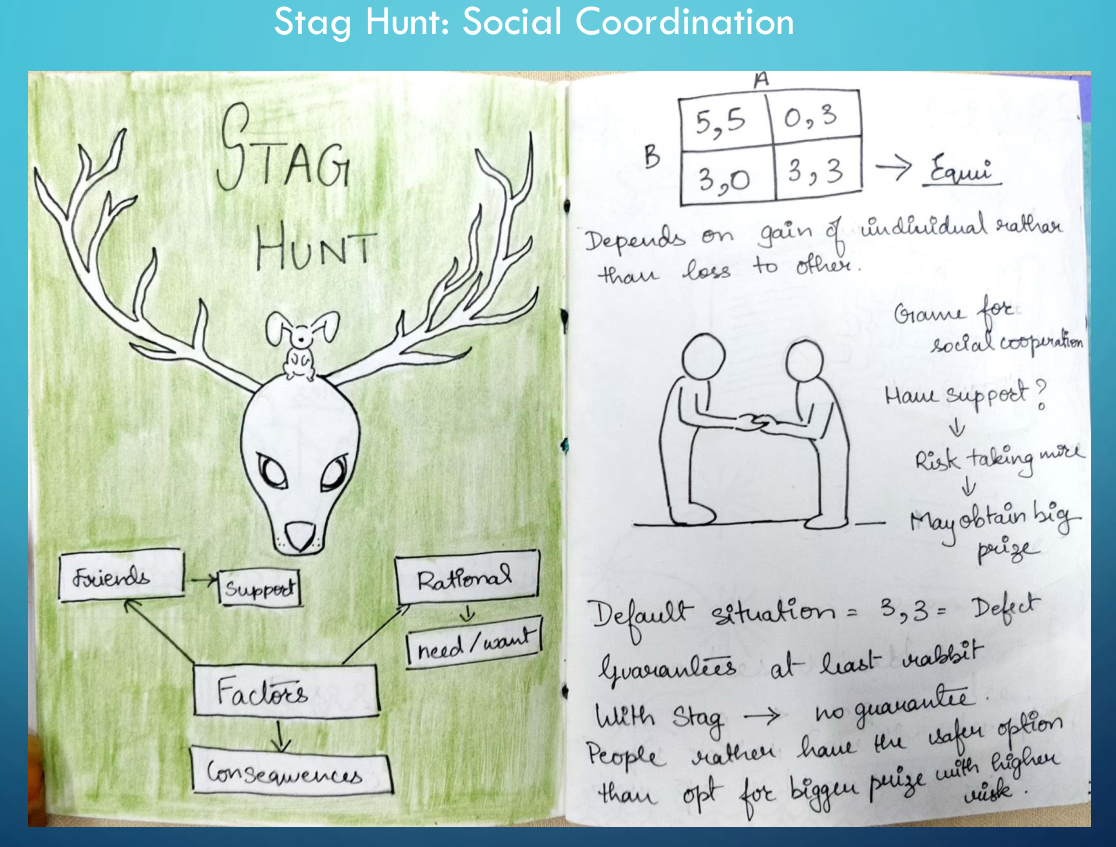 Stag Hunt: Social Coordination
STAG
HUNT
Friends
Support
Rational
need/want
Factors
Consequences
A
B
5,5 0,3
3,0 3,3
Equi
Depends on gain of individual rather
than loss to other.
Game for
social cooperation
Have support?
Risk taking more
May obtain big
prize
Default situation = 3,3 = Defect
Guarantees at least rabbit
With Stag → no guarantee.
People rather have the safer option
than opt for bigger prize with higher
risk.